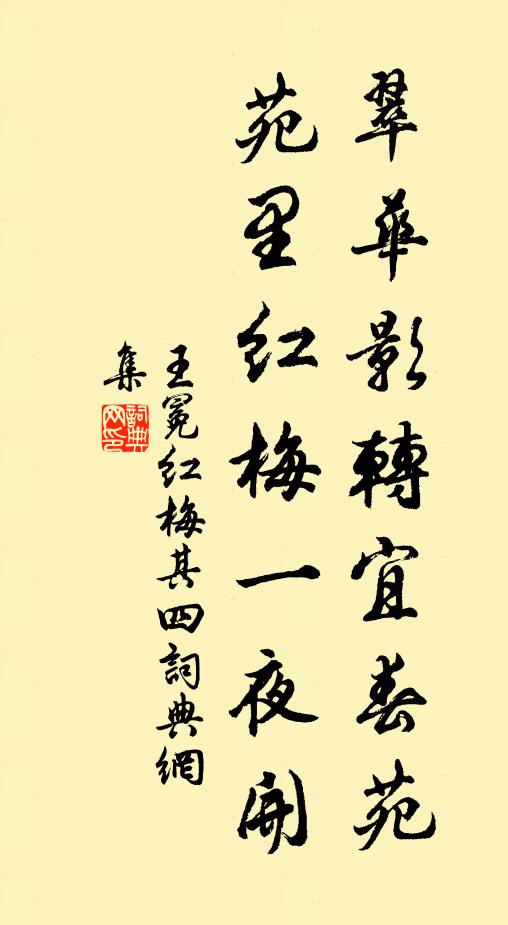 翠華影轉宜春苑
苑里紅梅一夜開
王冕紅梅其四詞典網
集
詞典網印